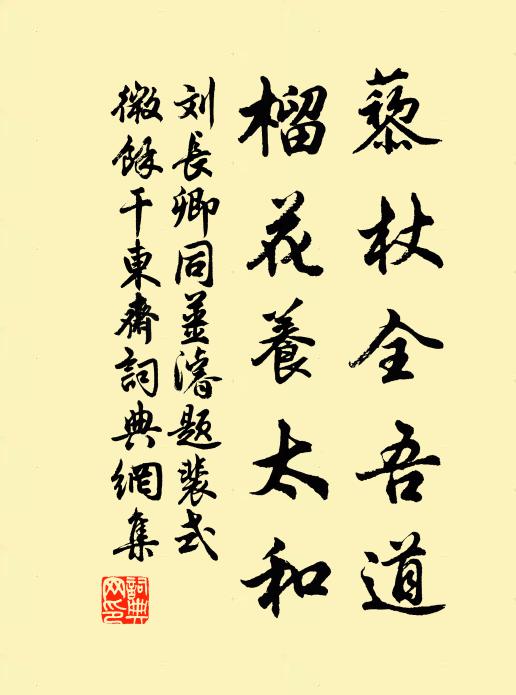 藜杖全吾道
榴花養太和
刘長卿同姜濬題裴式
微餘干東齋詞典網集